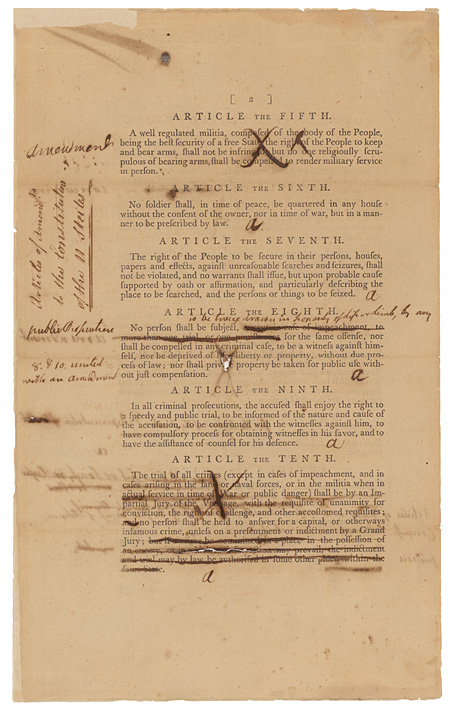 [ 2 ]
ARTICLE THE FIFTH.
A well regulated militia, composed of the body of the People,
being the best security of a free State, the right of the People to keep
and bear arms, shall not be infringed, but no one religiously scru-
pulous of bearing arms, shall be compelled to render military service
in person.
amendment
ARTICLE THE SIXTH.
No soldier shall, in time of peace, be quartered in any house
without the consent of the owner, nor in time of war, but in a man-
ner to be prescribed by law.
a
Article of Amendts
to the Constitution
of the 11 States
ARTICLE THE SEVENTH.
The right of the People to be secure in their persons, houses,
papers and effects, against unreasonable searches and seizures, shall
not be violated, and no warrants shall issue, but upon probable cause
supported by oath or affirmation, and particularly describing the
place to be searched, and the persons or things to be seized.
a
ARTICLE THE EIGHTH.
to be twice put in jeopardy of life or limb by any
public Prosecution
No person shall be subject, except in case of impeachment, to
more than one trial, or one punishment for the same offense, nor
shall be compelled in any criminal case, to be a witness against him-
self, nor be deprived of life, liberty or property, without due pro-
cess of law; nor shall private property be taken for public use with-
out just compensation.
a
8. & 10. united
with an amendment
ARTICLE THE NINTH.
In all criminal prosecutions, the accused shall enjoy the right to
a speedy and public trial, to be informed of the nature and cause of
the accusation, to be confronted with the witnesses against him, to
have compulsory process for obtaining witnesses in his favor, and to
have the assistance of counsel for his defence.
a
ARTICLE THE TENTH.
The trial of all crimes (except in cases of impeachment, and in
cases arising in the land or naval forces, or in the militia when in
actual service in time of war or public danger) shall be by an Im-
partial Jury of the Vicinage, with the requisite of unanimity for
conviction, the right of challenge, and other accostomed requisites;
no person shall be held to answer for a capital, or otherways
infamous crime, unless on a presentment or indictment by a Grand
Jury; but if a crime be committed in a place in the possession of
an enemy, or in which an insurrection may prevail, the indictment
and trial may by law be authorised in some other place within the
same State.
a